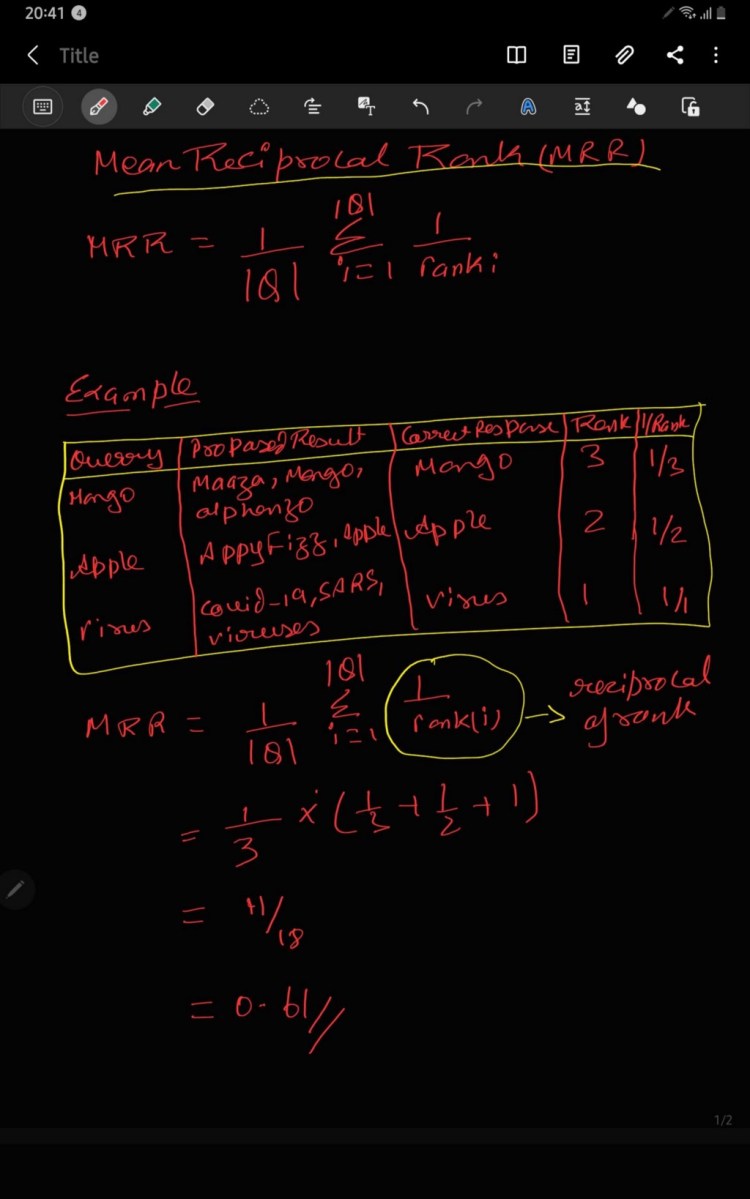 20:41 4
Title
Mean Reciprocal Rank (MRR)
MRR = 1/|Q| |Q| Σ i=1 1/rank i
Example
Querry | Proposed Result | Correct Response | Rank | 1/Rank
Mango | Maaza, Mango, alphanzo | Mango | 3 | 1/3
Apple | Appy Fizz, Apple | Apple | 2 | 1/2
Virus | Covid-19, SARS, viruses | Virus | 1 | 1/1
MRR = 1/|Q| |Q| Σ i=1 1/rank(i) → reciprocal of rank
= 1/3 × (1/3 + 1/2 + 1)
= 11/18
= 0.61//
1/2